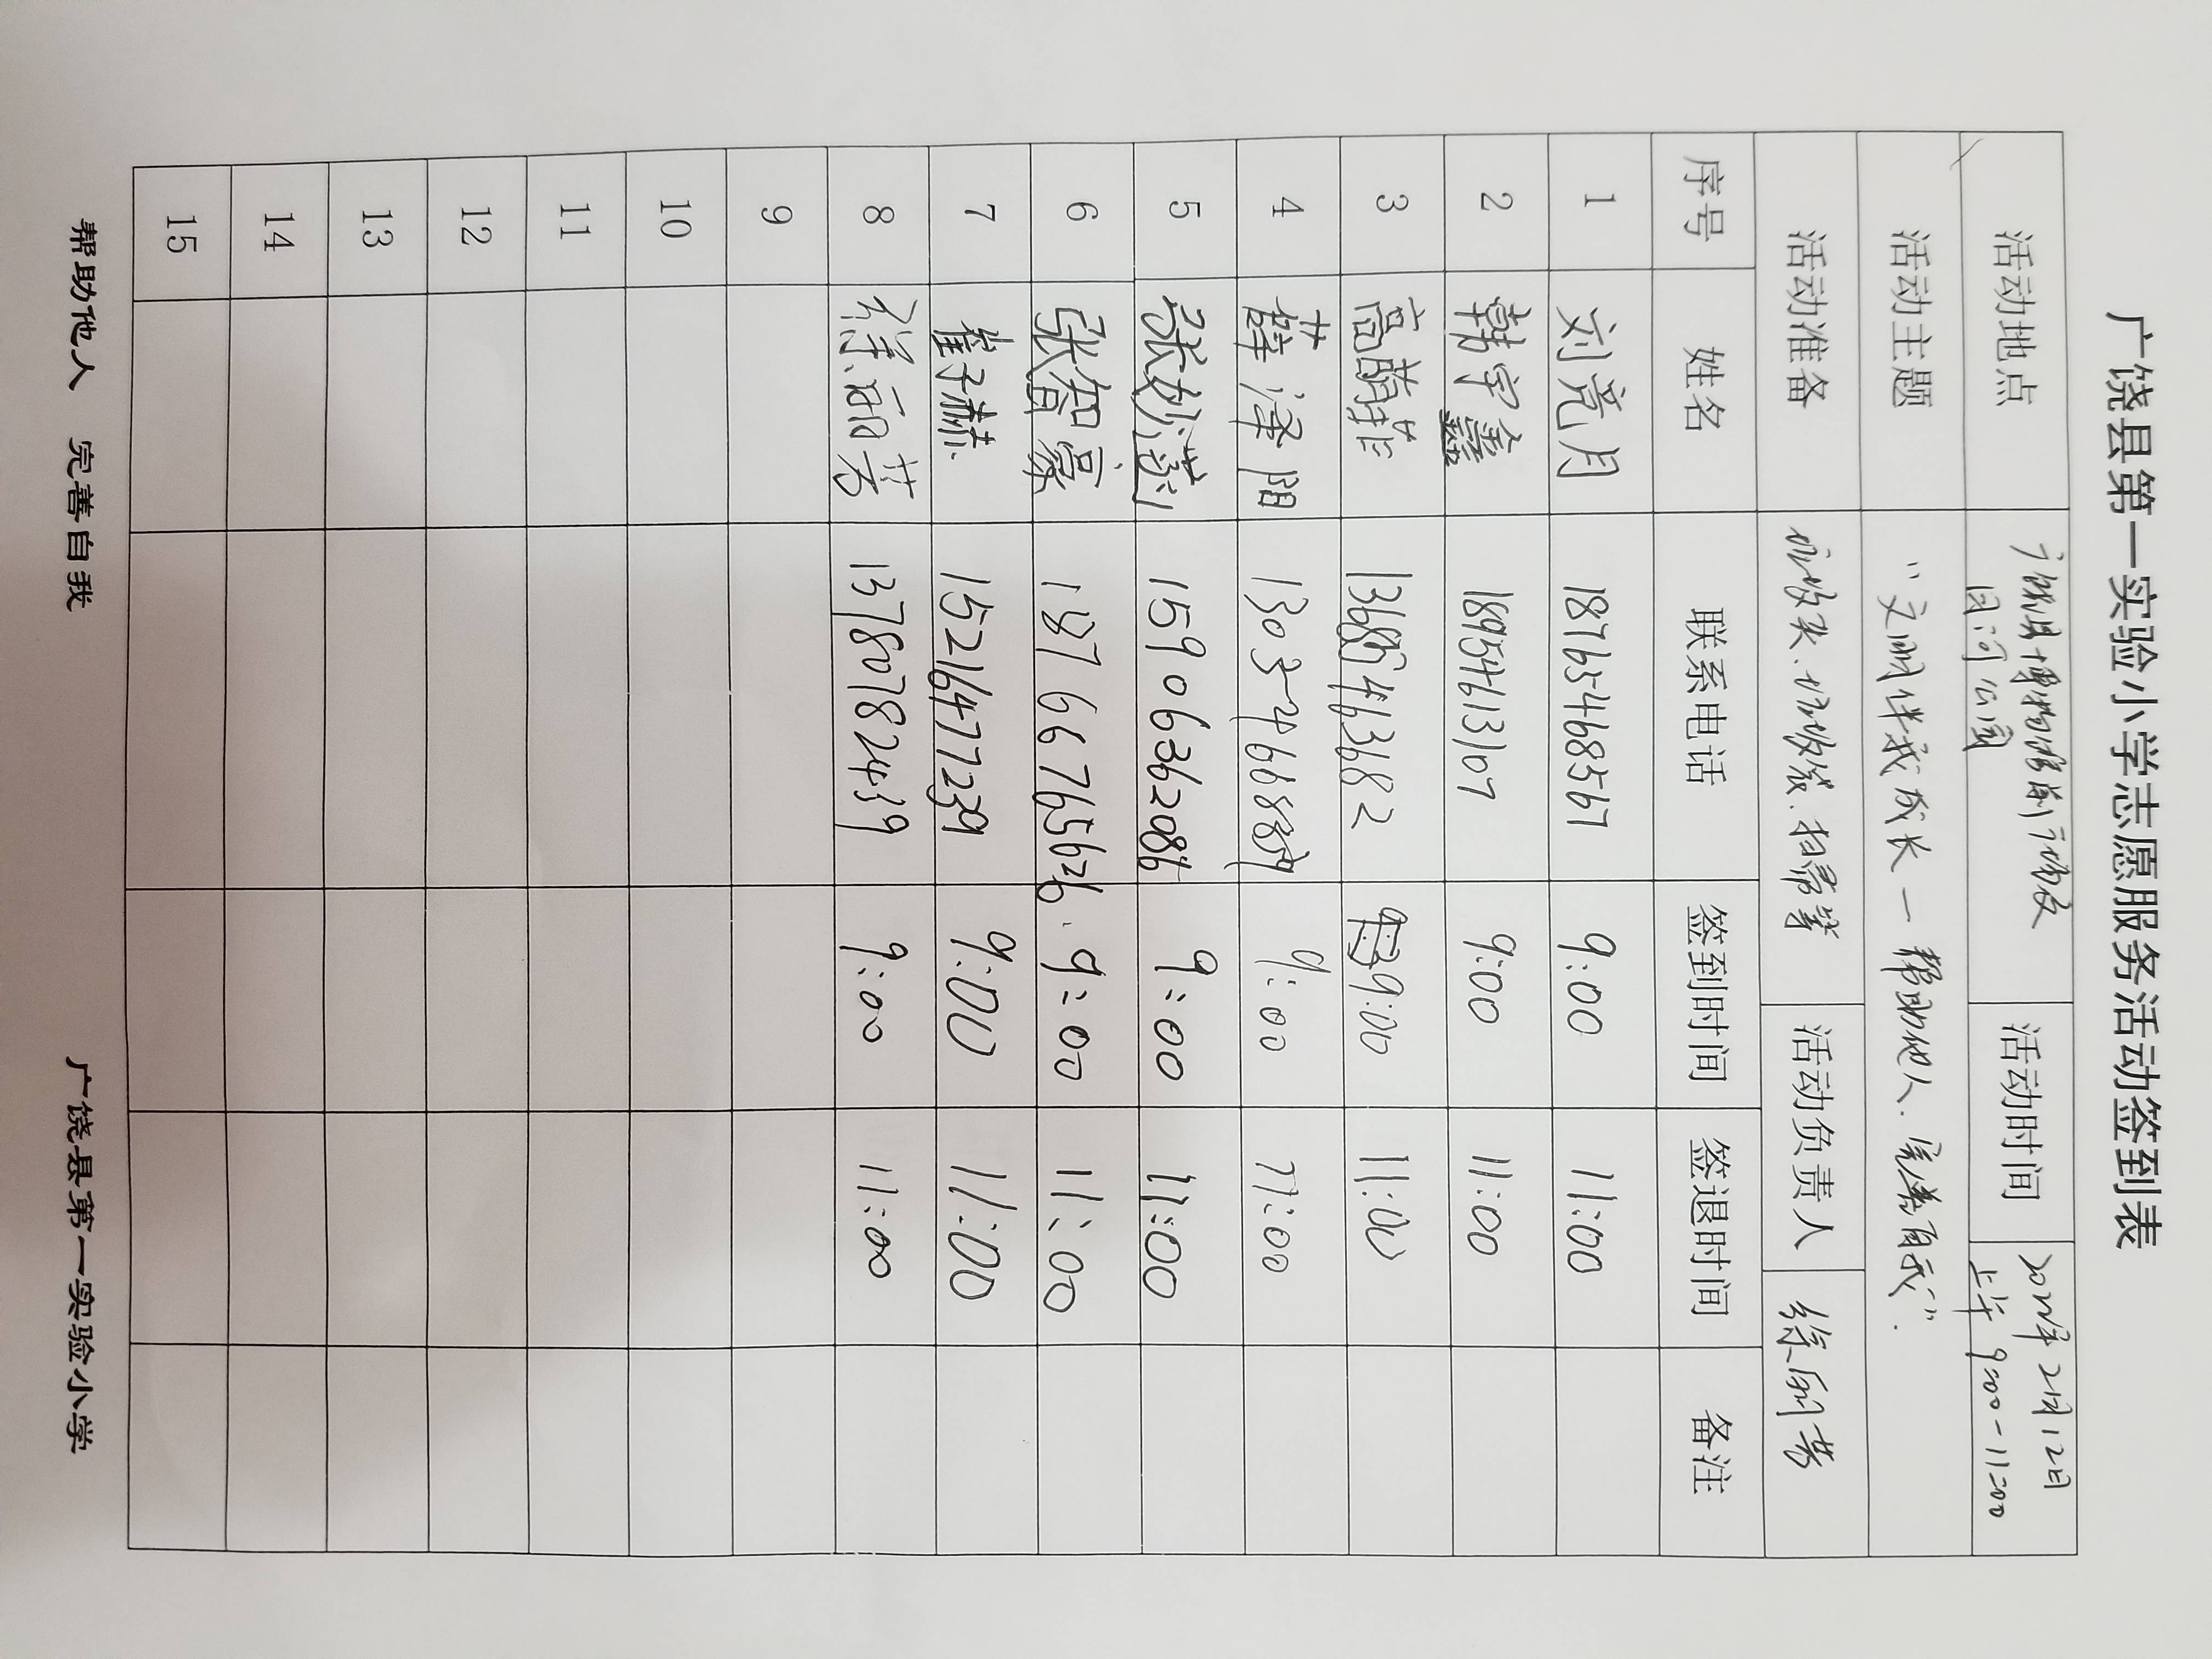 广饶县第一实验小学志愿服务活动签到表
活动地点 广饶县博物馆前广场及 活动时间 2022年2月12日
月河公园 上午 9:00-11:00
活动主题 “文明伴我成长—帮助他人、完善自我”.
活动准备 垃圾夹、垃圾袋、扫帚等 活动负责人 徐丽芳
序号 姓名 联系电话 签到时间 签退时间 备注
1 刘竞月 18765468567 9:00 11:00
2 韩宇鑫 18954613107 9:00 11:00
3 高荫菲 9:00 11:00
4 薛泽阳 9:00 11:00
5 张妙涵 15906362086 9:00 11:00
6 张智豪 18766765626 9:00 11:00
7 崔子赫 15216477239 9:00 11:00
8 徐丽芳 13780782439 9:00 11:00
9
10
11
12
13
14
15
帮助他人 完善自我 广饶县第一实验小学